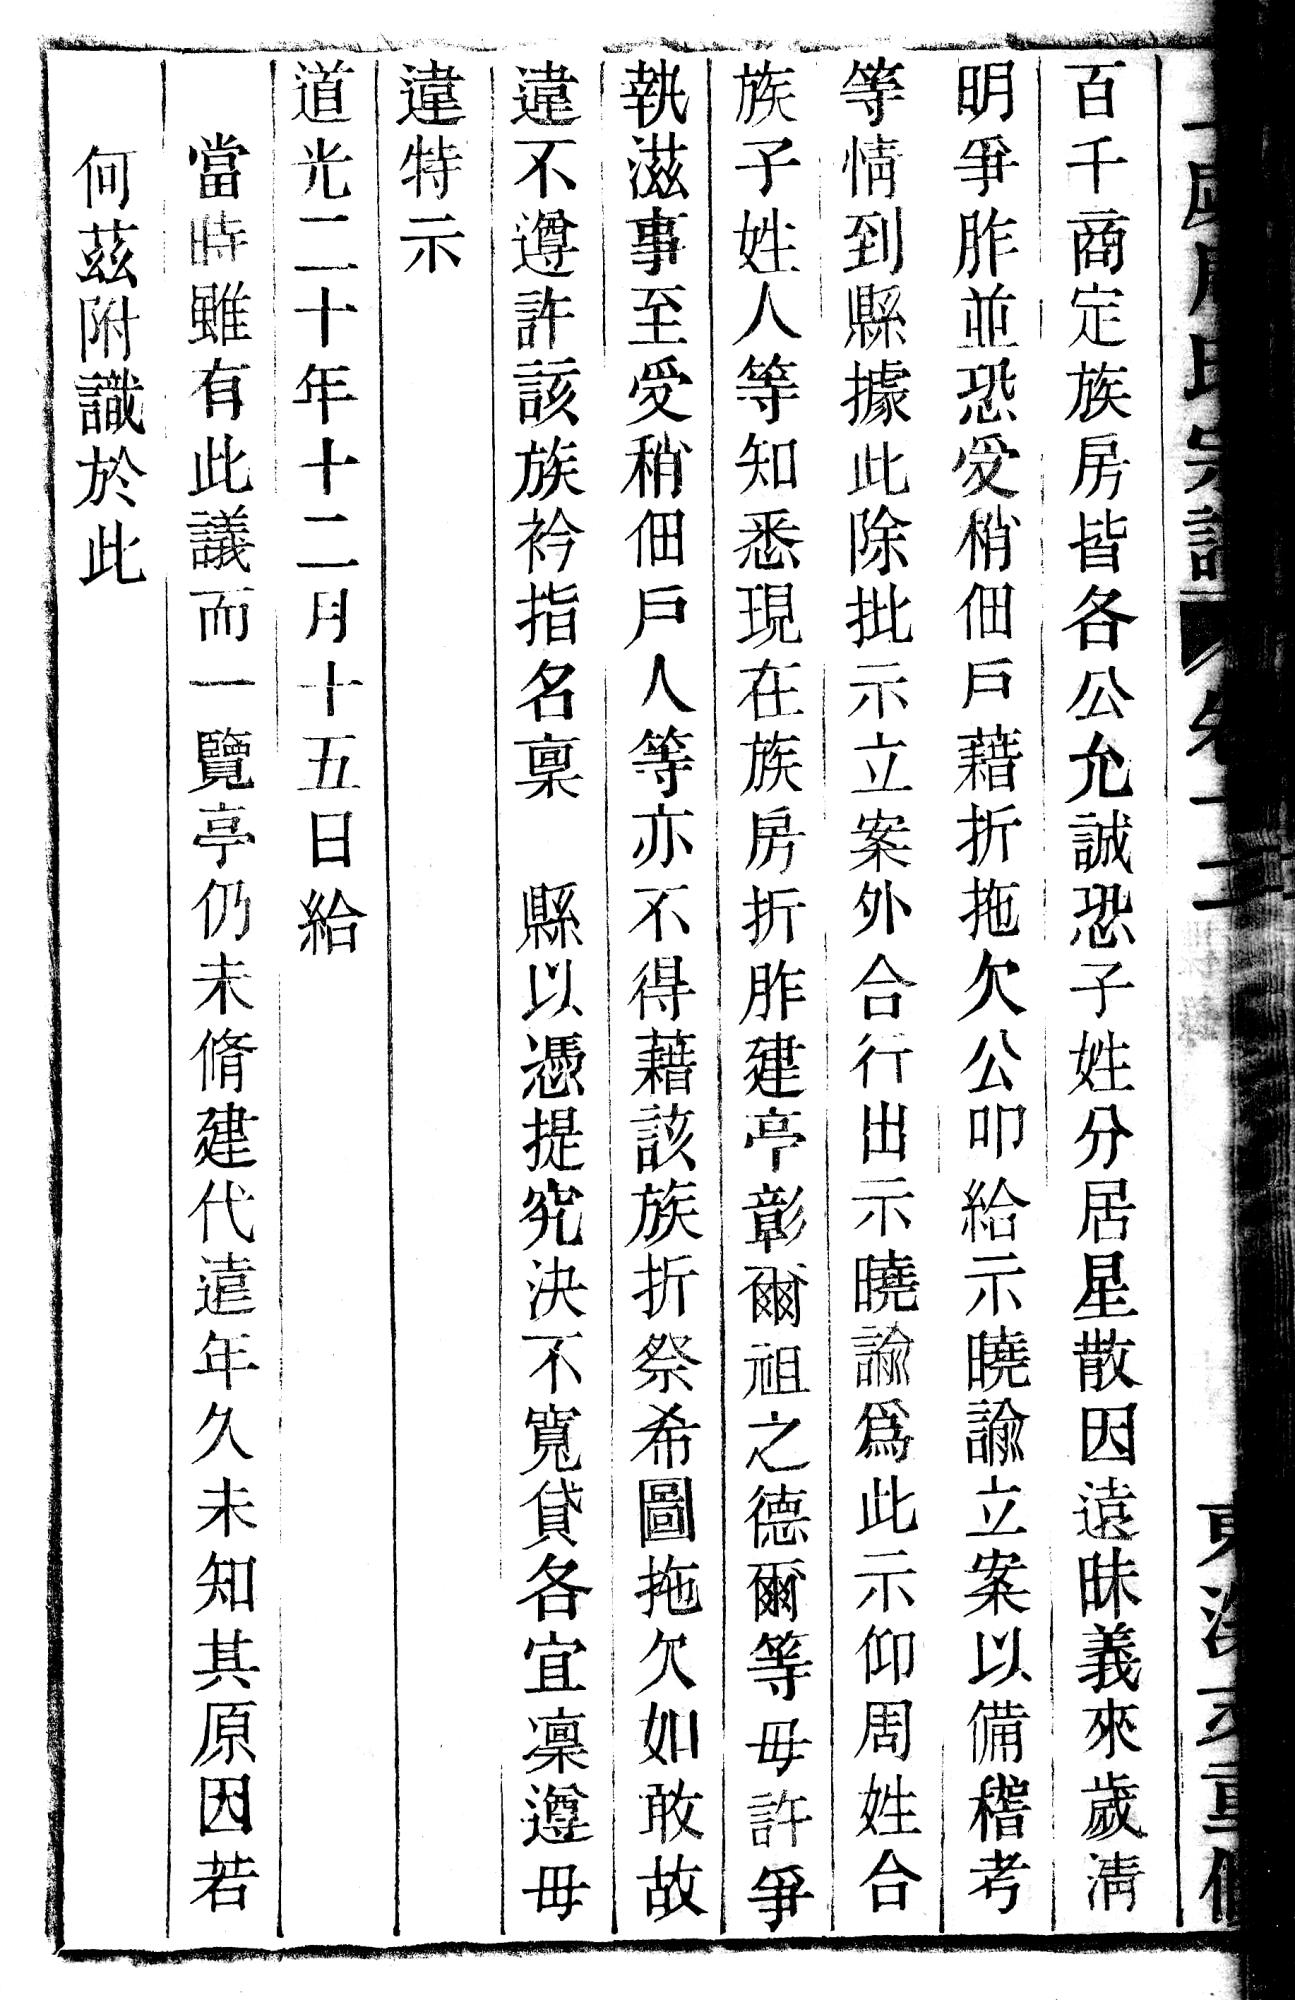 百千商定族房皆各公允誠恐子姓分居星散因遠昧義來歲淸
明爭胙並恐受稍佃戶藉折拖欠公叩給示曉諭立案以備稽考
等情到縣據此除批示立案外合行出示曉諭爲此示仰周姓合
族子姓人等知悉現在族房折胙建亭彰爾祖之德爾等毋許爭
執滋事至受稍佃戶人等亦不得藉該族折祭希圖拖欠如敢故
違不遵許該族衿指名稟　縣以憑提究決不寬貸各宜凜遵毋
違特示
道光二十年十二月十五日給
當時雖有此議而一覽亭仍未脩建代遠年久未知其原因若
何茲附識於此